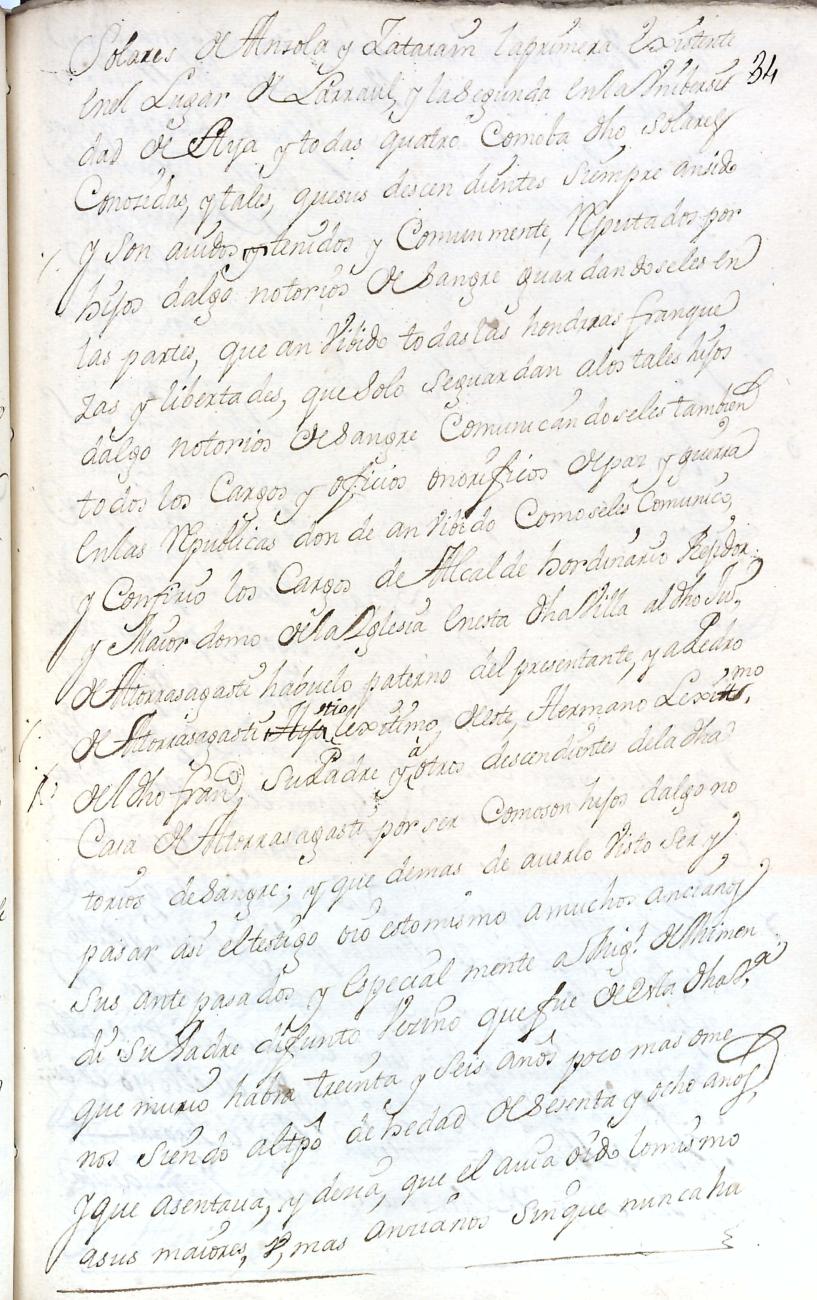 34
Solares de Anzola y Zatarain la primera existente
en el Lugar de Larraul y la Segunda en la Vnibersi
dad de Aya y todas quatro Comoba dho solares
Conozidas, y tales, que sus descendientes siempre an sido
y son auidos y tenidos y Comunmente, Reputados por
hijos dalgo notorios de Sangre guardandoseles en
las partes, que an Vibido todas las honrras franque
zas y libertades, que solo se guardan a los tales hijos
dalgo notorios de Sangre Comunicandoseles tambien
todos los Cargos y oficios onorificos de paz y guerra
en las Republicas donde an Vibido Como se les Comunico,
y Confirio los Cargos de Alcalde hordinario Rejidor
y Maiordomo de la Iglesia en esta dha Villa al dho
de Atorrasagasti habuelo paterno del presentante, y a Pedro
de Atorrasagasti tio lexitimo, de este, Hermano Lexitmo.
del dho franco. su Padre y a otros descendientes de la dha
Casa de Atorrasagasti por ser Como son hijos dalgo no
torios de Sangre; y que demas de auerlo Visto ser y
pasar asi el testigo oio esto mismo a muchos ancianos
sus antepasados y Especialmente a Migl. de Mimen
di su Padre difunto Vezino que fue de esta dha Va.
que murio habra treinta y seis años poco mas o me
nos siendo al tpo de hedad de sesenta y ocho años,
y que asentaua, y dezia, que el auia oido lo mismo
a sus maiores, y mas anzianos sin que nunca ha